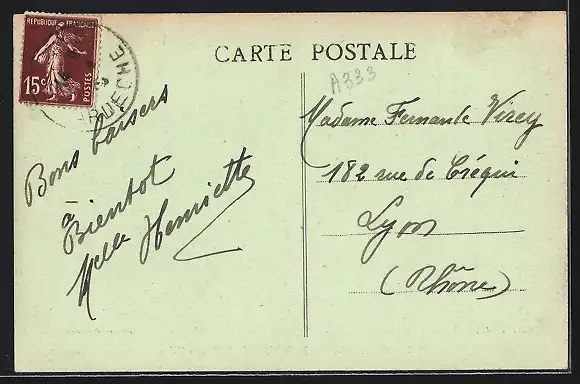 REPUBLIQUE FRANÇAISE
15c
POSTES
ARDECHE
CARTE POSTALE
A333
Bons baisers
à
Bientot
Melle Henriette
Madame Fernande Virey
182 rue de Créqui
Lyon
(Rhône)